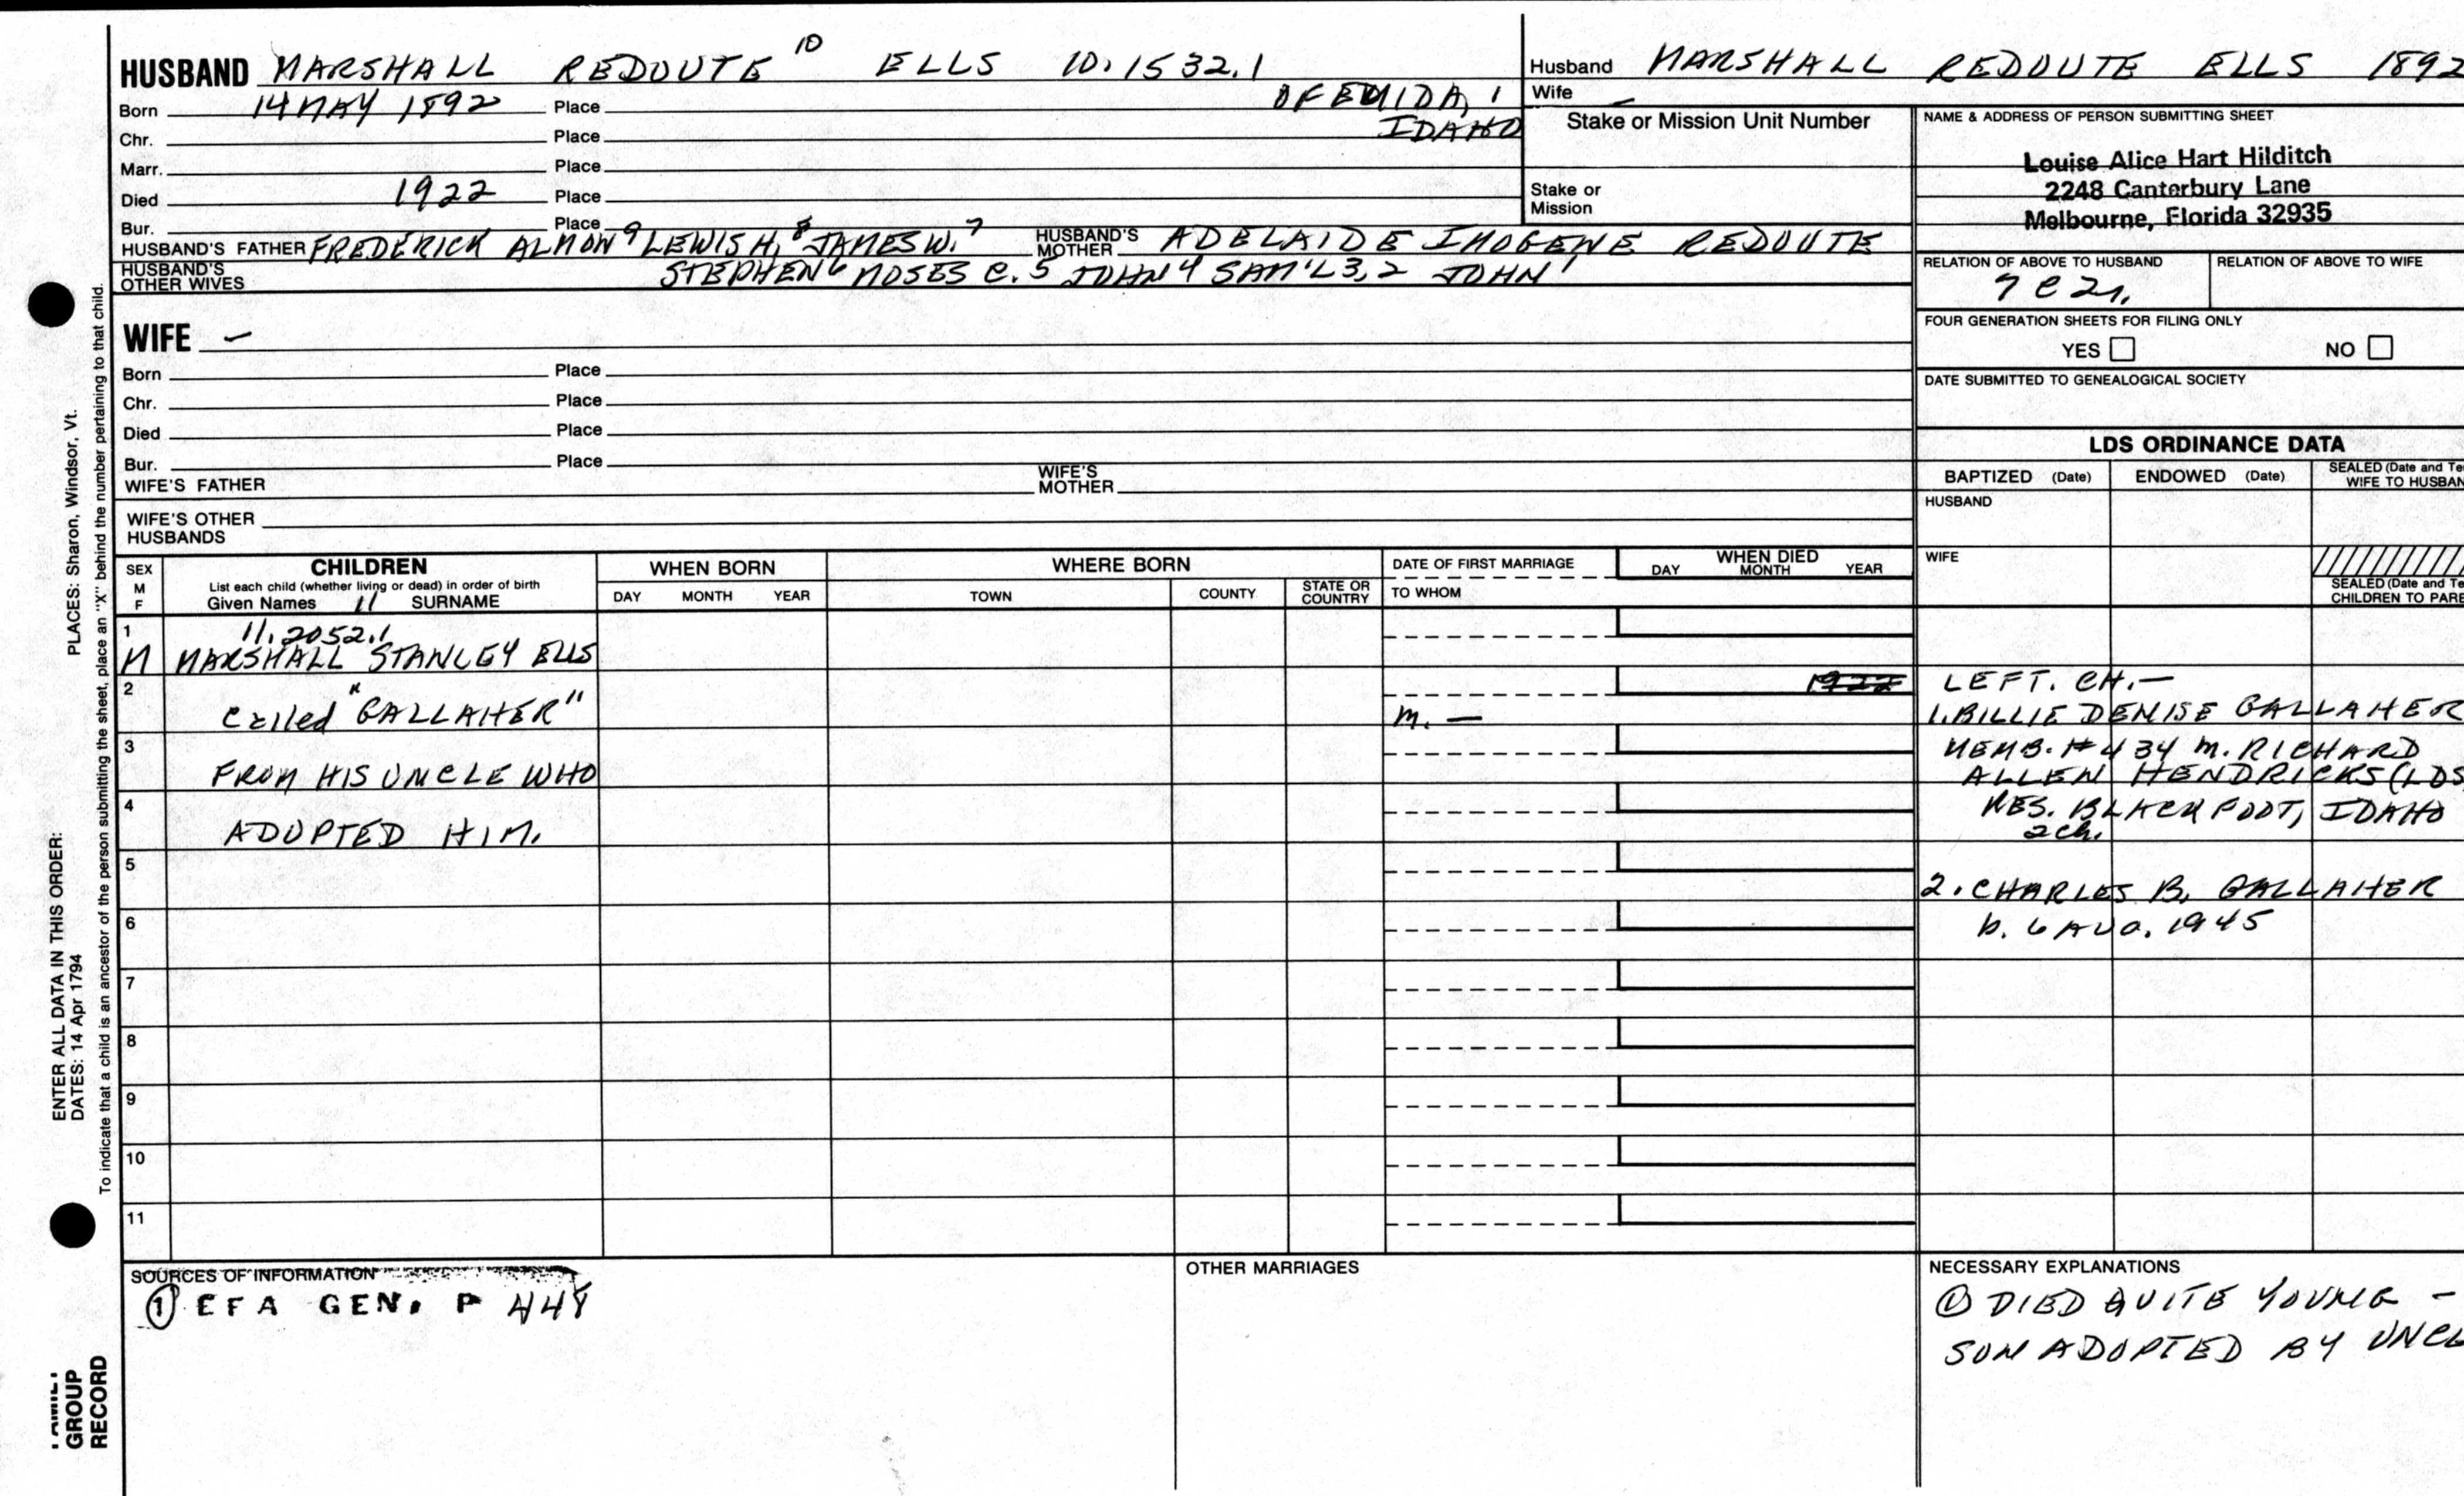 HUSBAND MARSHALL REDOUTE 10 ELLS 10.1532.1
Born 14 MAY 1892 Place OF EMIDA,
Chr. Place IDAHO
Marr. Place
Died 1922 Place
Bur. Place
HUSBAND'S FATHER FREDERICK ALMON 9 LEWIS H, 8 JAMES W. 7 HUSBAND'S MOTHER ADELAIDE IMOGENE REDOUTE
HUSBAND'S OTHER WIVES STEPHEN 6 MOSES C. 5 JOHN 4 SAM'L 3,2 JOHN 1
WIFE —
Born Place
Chr. Place
Died Place
Bur. Place
WIFE'S FATHER WIFE'S MOTHER
WIFE'S OTHER
HUSBANDS
Husband MARSHALL REDOUTE ELLS 1892
Wife —
Stake or Mission Unit Number
Stake or
Mission
NAME & ADDRESS OF PERSON SUBMITTING SHEET
Louise Alice Hart Hilditch
2248 Canterbury Lane
Melbourne, Florida 32935
RELATION OF ABOVE TO HUSBAND RELATION OF ABOVE TO WIFE
7 C 2r.
FOUR GENERATION SHEETS FOR FILING ONLY
YES NO
DATE SUBMITTED TO GENEALOGICAL SOCIETY
LDS ORDINANCE DATA
BAPTIZED (Date) ENDOWED (Date) SEALED (Date and Te
WIFE TO HUSBAN
HUSBAND
WIFE
SEALED (Date and Te
CHILDREN TO PARE
SEX
M
F
CHILDREN
List each child (whether living or dead) in order of birth
Given Names 11 SURNAME
WHEN BORN
DAY MONTH YEAR
WHERE BORN
TOWN COUNTY STATE OR COUNTRY
DATE OF FIRST MARRIAGE
TO WHOM
WHEN DIED
DAY MONTH YEAR
1 11.2052.1
M MARSHALL STANLEY ELLS
2 1922
called "GALLAHER" m. —
3
FROM HIS UNCLE WHO
4
ADOPTED HIM.
5
6
7
8
9
10
11
LEFT. CH.—
1. BILLIE DENISE GALLAHER
MEMB. # 434 m. RICHARD
ALLEN HENDRICKS (LDS
RES. BLACKFOOT, IDAHO
2 ch.
2. CHARLES B. GALLAHER
b. 6 AUG. 1945
SOURCES OF INFORMATION
① EFA GEN. P 448
OTHER MARRIAGES
NECESSARY EXPLANATIONS
① DIED QUITE YOUNG —
SON ADOPTED BY UNCL
ENTER ALL DATA IN THIS ORDER:
DATES: 14 Apr 1794 PLACES: Sharon, Windsor, Vt.
To indicate that a child is an ancestor of the person submitting the sheet, place an "X" behind the number pertaining to that child.
FAMILY
GROUP
RECORD